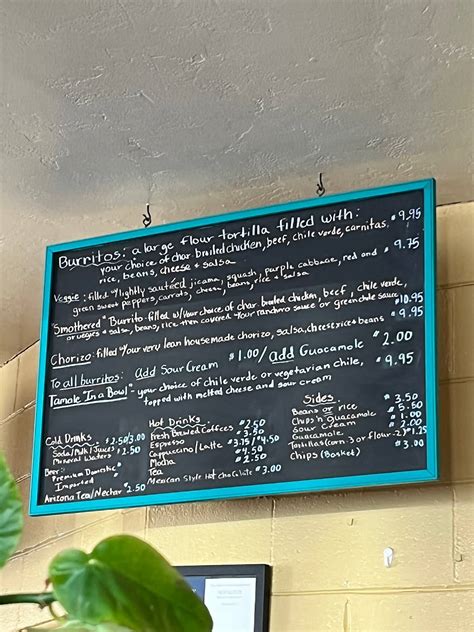 Burritos: a large flour tortilla filled with:
your choice of char-broiled chicken, beef, chile verde, carnitas, $9.95
rice, beans, cheese & salsa
Veggie: filled w/lightly sautéed jicama, squash, purple cabbage, red and $9.75
green sweet peppers, carrots, cheese, beans, rice & salsa
"Smothered" Burrito-filled w/your choice of char broiled chicken, beef, chile verde,
or veggies & salsa, beans, rice then covered w/our ranchero sauce or green chile sauce $10.95
Chorizo: filled w/our very lean housemade chorizo, salsa, cheese, rice & beans $9.95
To all burritos: add Sour Cream $1.00/add Guacamole $2.00
Tamale "In a Bowl" - your choice of chile verde or vegetarian chile, $9.95
topped with melted cheese and sour cream
Cold Drinks
Soda/Milk/Juices $2.50/3.00
Mineral Waters $2.50
Beer:
Premium Domestic
Imported
Arizona Tea/Nectar $2.50
Hot Drinks
Fresh Brewed Coffees $2.50
Espresso $3.50
Cappuccino/Latte $3.75/$4.50
Mocha $4.50
Tea $2.50
Mexican Style Hot chocolate $3.00
Sides
Beans or rice $3.50
Chips n guacamole $5.50
Sour Cream $1.00
Guacamole $2.00
Tortillas (corn-3 or flour-2) $1.25
Chips (Basket) $3.00